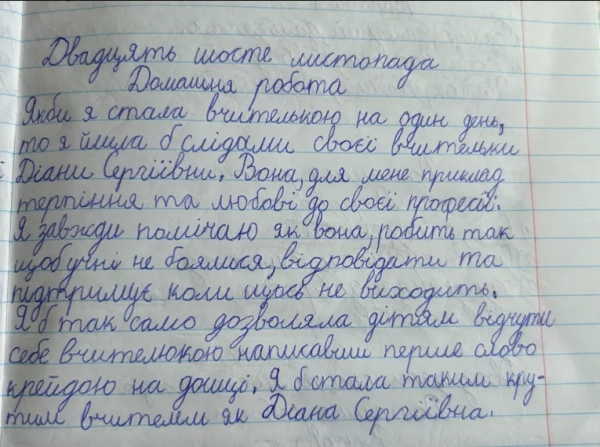 Двадцять шосте листопада
Домашня робота
Якби я стала вчителькою на один день,
то я йшла б слідами своєї вчительки
Діани Сергіївни. Вона, для мене приклад
терпіння та любові до своєї професії.
Я завжди помічаю як вона, робить так
щоб учні не боялися, відповідати та
підтримує коли щось не виходить.
Я б так само дозволяла дітям відчути
себе вчителюкою написавши перше слово
крейдою на дошці. Я б стала таким кру-
тим вчителем як Діана Сергіївна.